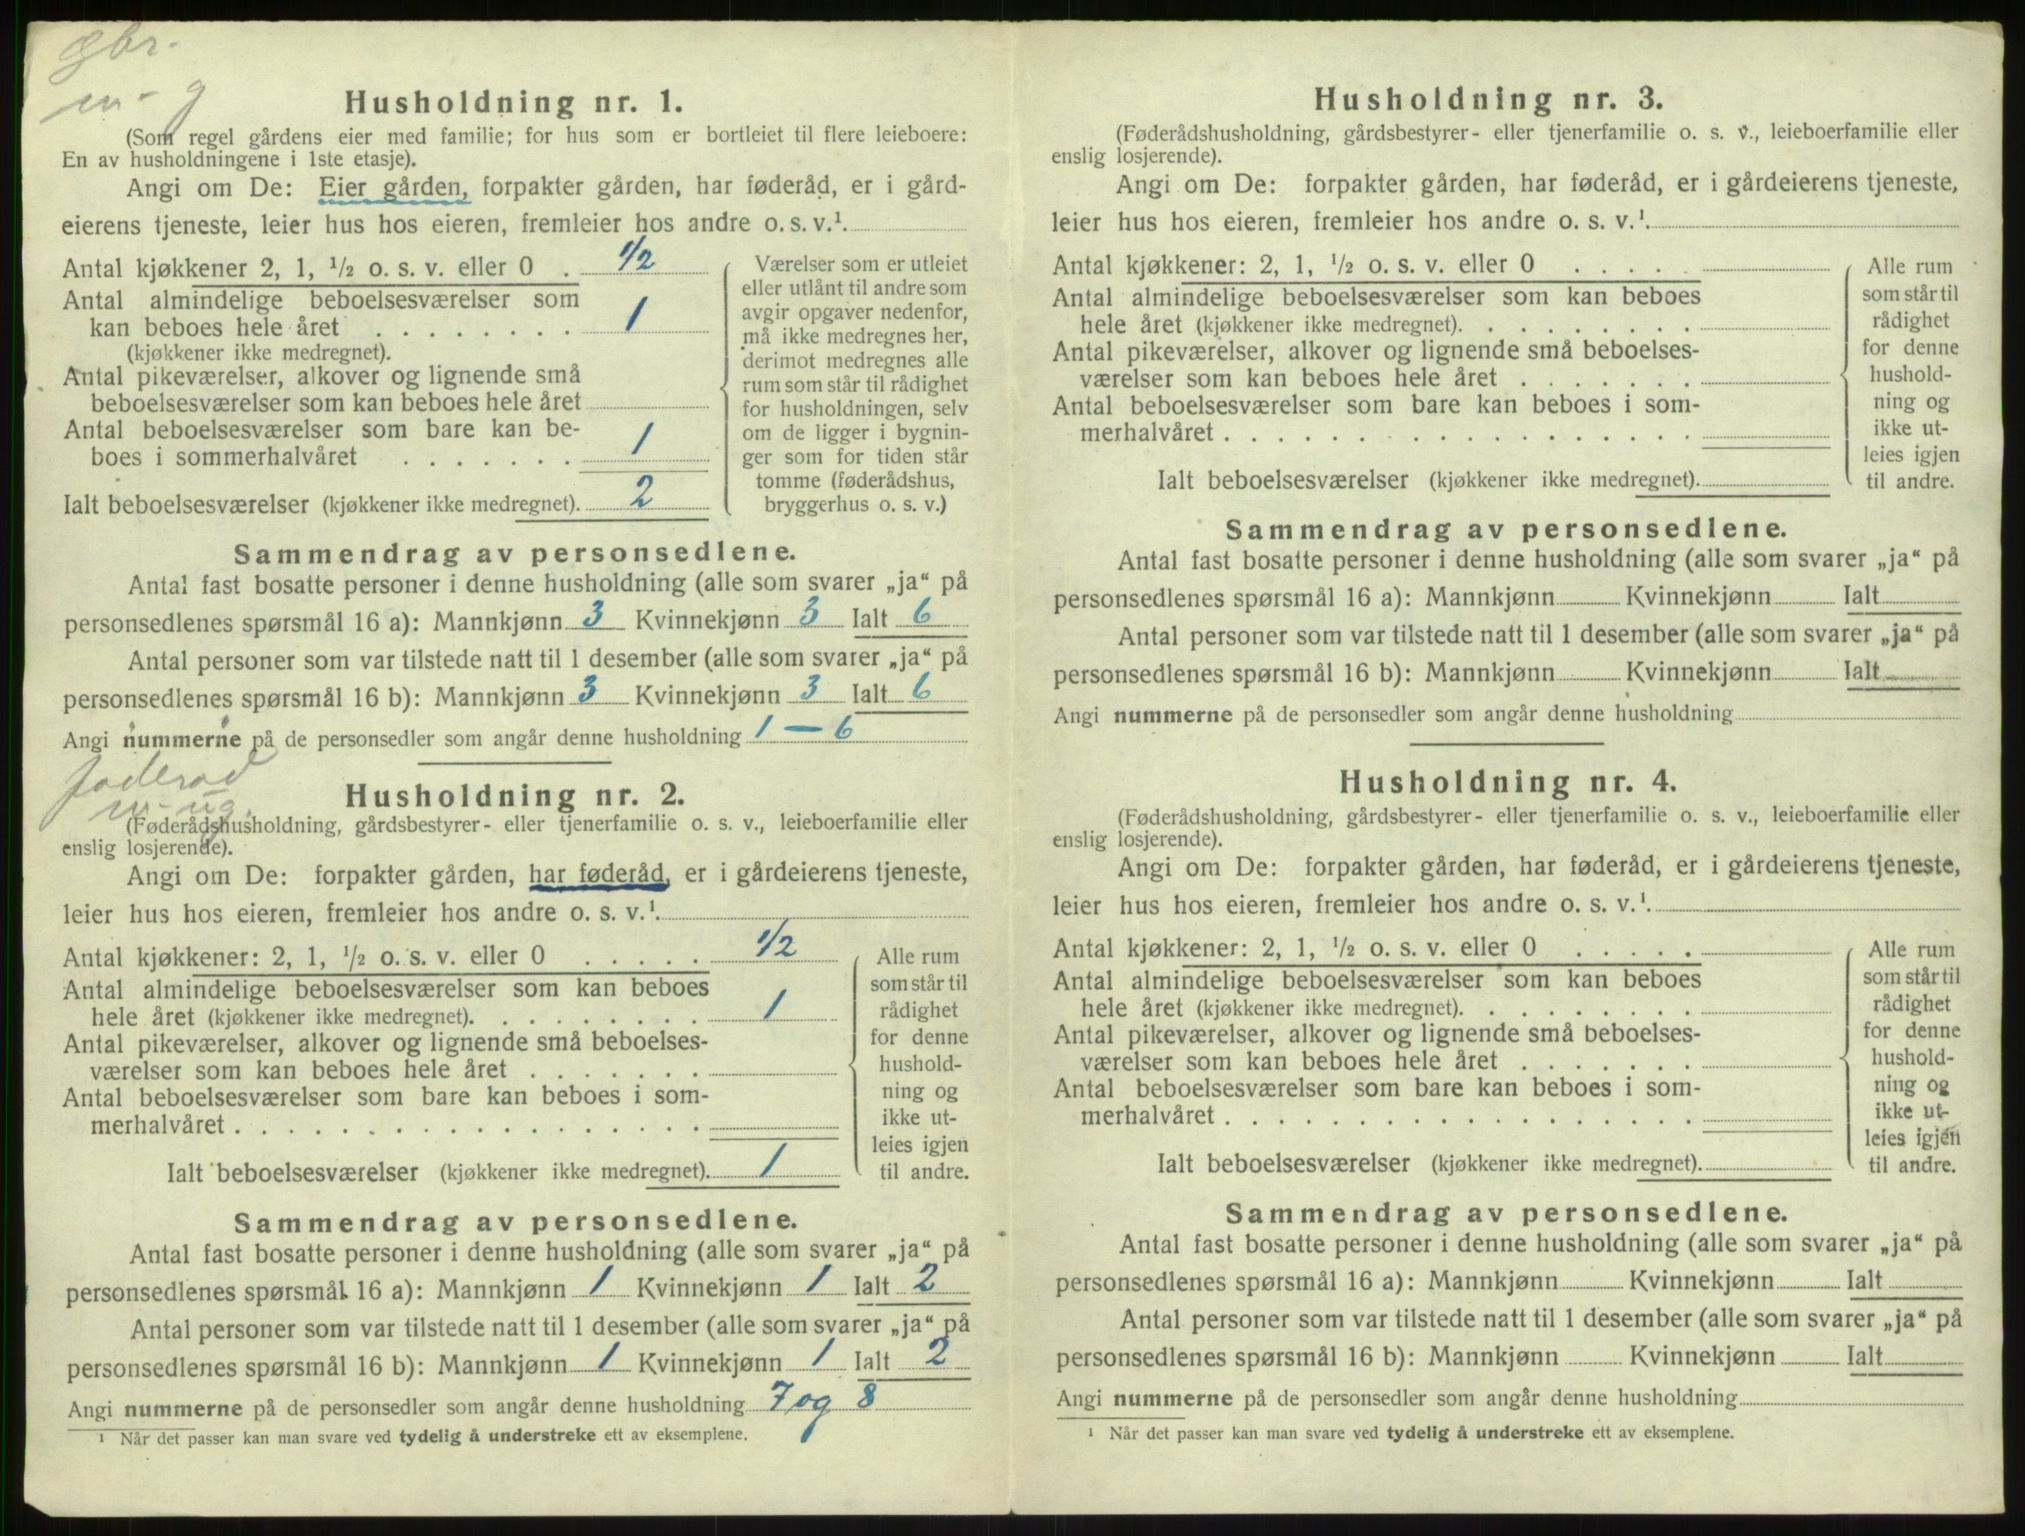 gbr.
m - g
Husholdning nr. 1.
(Som regel gårdens eier med familie; for hus som er bortleiet til flere leieboere:
En av husholdningene i 1ste etasje).
Angi om De: Eier gården, forpakter gården, har føderåd, er i gård-
eierens tjeneste, leier hus hos eieren, fremleier hos andre o. s. v.¹.
Antal kjøkkener 2, 1, ½ o. s. v. eller 0 . 1/2
Antal almindelige beboelsesværelser som
kan beboes hele året . . . . . . . . 1
(kjøkkener ikke medregnet).
Antal pikeværelser, alkover og lignende små
beboelsesværelser som kan beboes hele året
Antal beboelsesværelser som bare kan be-
boes i sommerhalvåret . . . . . . . 1
Ialt beboelsesværelser (kjøkkener ikke medregnet). 2
Værelser som er utleiet
eller utlånt til andre som
avgir opgaver nedenfor,
må ikke medregnes her,
derimot medregnes alle
rum som står til rådighet
for husholdningen, selv
om de ligger i bygnin-
ger som for tiden står
tomme (føderådshus,
bryggerhus o. s. v.)
Sammendrag av personsedlene.
Antal fast bosatte personer i denne husholdning (alle som svarer „ja“ på
personsedlenes spørsmål 16 a): Mannkjønn 3 Kvinnekjønn 3 Ialt 6
Antal personer som var tilstede natt til 1 desember (alle som svarer „ja“ på
personsedlenes spørsmål 16 b): Mannkjønn 3 Kvinnekjønn 3 Ialt 6
Angi nummerne på de personsedler som angår denne husholdning 1 — 6
føderåd
m - ug.
Husholdning nr. 2.
(Føderådshusholdning, gårdsbestyrer- eller tjenerfamilie o. s. v., leieboerfamilie eller
enslig losjerende).
Angi om De: forpakter gården, har føderåd, er i gårdeierens tjeneste,
leier hus hos eieren, fremleier hos andre o. s. v.¹.
Antal kjøkkener: 2, 1, ½ o. s. v. eller 0 . . . . . 1/2
Antal almindelige beboelsesværelser som kan beboes
hele året (kjøkkener ikke medregnet). . . . . . . . . 1
Antal pikeværelser, alkover og lignende små beboelses-
værelser som kan beboes hele året . . . . . . .
Antal beboelsesværelser som bare kan beboes i som-
merhalvåret . . . . . . . . . . . . . . . . . .
Ialt beboelsesværelser (kjøkkener ikke medregnet). 1
Alle rum
som står til
rådighet
for denne
hushold-
ning og
ikke ut-
leies igjen
til andre.
Sammendrag av personsedlene.
Antal fast bosatte personer i denne husholdning (alle som svarer „ja“ på
personsedlenes spørsmål 16 a): Mannkjønn 1 Kvinnekjønn 1 Ialt 2
Antal personer som var tilstede natt til 1 desember (alle som svarer „ja“ på
personsedlenes spørsmål 16 b): Mannkjønn 1 Kvinnekjønn 1 Ialt 2
Angi nummerne på de personsedler som angår denne husholdning 7 og 8
¹ Når det passer kan man svare ved tydelig å understreke ett av eksemplene.
Husholdning nr. 3.
(Føderådshusholdning, gårdsbestyrer- eller tjenerfamilie o. s. v., leieboerfamilie eller
enslig losjerende).
Angi om De: forpakter gården, har føderåd, er i gårdeierens tjeneste,
leier hus hos eieren, fremleier hos andre o. s. v.¹.
Antal kjøkkener: 2, 1, ½ o. s. v. eller 0 . . . . .
Antal almindelige beboelsesværelser som kan beboes
hele året (kjøkkener ikke medregnet). . . . . . . . .
Antal pikeværelser, alkover og lignende små beboelses-
værelser som kan beboes hele året . . . . . . .
Antal beboelsesværelser som bare kan beboes i som-
merhalvåret . . . . . . . . . . . . . . . . . .
Ialt beboelsesværelser (kjøkkener ikke medregnet).
Alle rum
som står til
rådighet
for denne
hushold-
ning og
ikke ut-
leies igjen
til andre.
Sammendrag av personsedlene.
Antal fast bosatte personer i denne husholdning (alle som svarer „ja“ på
personsedlenes spørsmål 16 a): Mannkjønn Kvinnekjønn Ialt
Antal personer som var tilstede natt til 1 desember (alle som svarer „ja“ på
personsedlenes spørsmål 16 b): Mannkjønn Kvinnekjønn Ialt
Angi nummerne på de personsedler som angår denne husholdning
Husholdning nr. 4.
(Føderådshusholdning, gårdsbestyrer- eller tjenerfamilie o. s. v., leieboerfamilie eller
enslig losjerende).
Angi om De: forpakter gården, har føderåd, er i gårdeierens tjeneste,
leier hus hos eieren, fremleier hos andre o. s. v.¹.
Antal kjøkkener: 2, 1, ½ o. s. v. eller 0 . . . . .
Antal almindelige beboelsesværelser som kan beboes
hele året (kjøkkener ikke medregnet). . . . . . . . .
Antal pikeværelser, alkover og lignende små beboelses-
værelser som kan beboes hele året . . . . . . .
Antal beboelsesværelser som bare kan beboes i som-
merhalvåret . . . . . . . . . . . . . . . . . .
Ialt beboelsesværelser (kjøkkener ikke medregnet).
Alle rum
som står til
rådighet
for denne
hushold-
ning og
ikke ut-
leies igjen
til andre.
Sammendrag av personsedlene.
Antal fast bosatte personer i denne husholdning (alle som svarer „ja“ på
personsedlenes spørsmål 16 a): Mannkjønn Kvinnekjønn Ialt
Antal personer som var tilstede natt til 1 desember (alle som svarer „ja“ på
personsedlenes spørsmål 16 b): Mannkjønn Kvinnekjønn Ialt
Angi nummerne på de personsedler som angår denne husholdning
¹ Når det passer kan man svare ved tydelig å understreke ett av eksemplene.